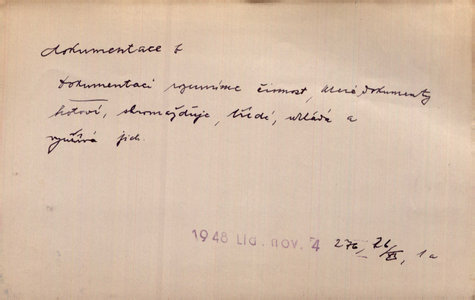 dokumentace f
Dokumentací rozumíme činnost, která dokumenty
hotoví, shromažďuje, třídí, ukládá a
využívá jich.
1948 Lid. nov. 4 276/ 26/XI, 1a